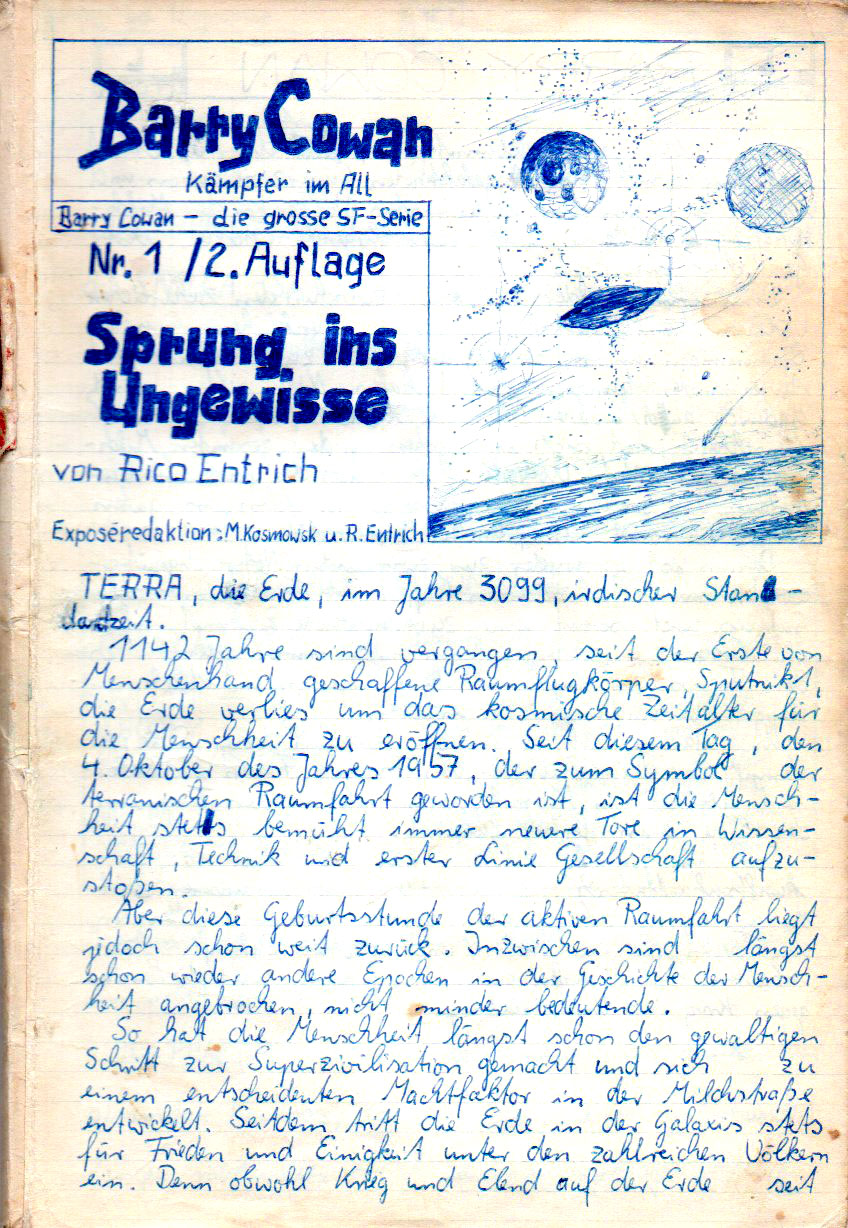 Barry Cowan
Kämpfer im All
Barry Cowan – die grosse SF-Serie
Nr. 1 / 2. Auflage
Sprung ins
Ungewisse
von Rico Entrich
Exposéredaktion: M. Kosmowsk u. R. Entrich
TERRA, die Erde, im Jahre 3099, irdischer Stand-
dartzeit.
1142 Jahre sind vergangen, seit der Erste von
Menschenhand geschaffene Raumflugkörper, Sputnik 1,
die Erde verlies um das kosmische Zeitalter für
die Menschheit zu eröffnen. Seit diesem Tag, den
4. Oktober des Jahres 1957, der zum Symbol der
terranischen Raumfahrt geworden ist, ist die Mensch-
heit stets bemüht immer neuere Tore in Wissen-
schaft, Technik und erster Linie Gesellschaft aufzu-
stoßen.
Aber diese Geburtsstunde der aktiven Raumfahrt liegt
jedoch schon weit zurück. Inzwischen sind längst
schon wieder andere Epochen in der Geschichte der Mensch-
heit angebrochen, nicht minder bedeutende.
So hat die Menschheit längst schon den gewaltigen
Schritt zur Superzivilisation gemacht und sich zu
einem entscheidenten Machtfaktor in der Milchstraße
entwickelt. Seitdem tritt die Erde in der Galaxis stets
für Frieden und Einigkeit unter den zahlreichen Völkern
ein. Denn obwohl Krieg und Elend auf der Erde seit